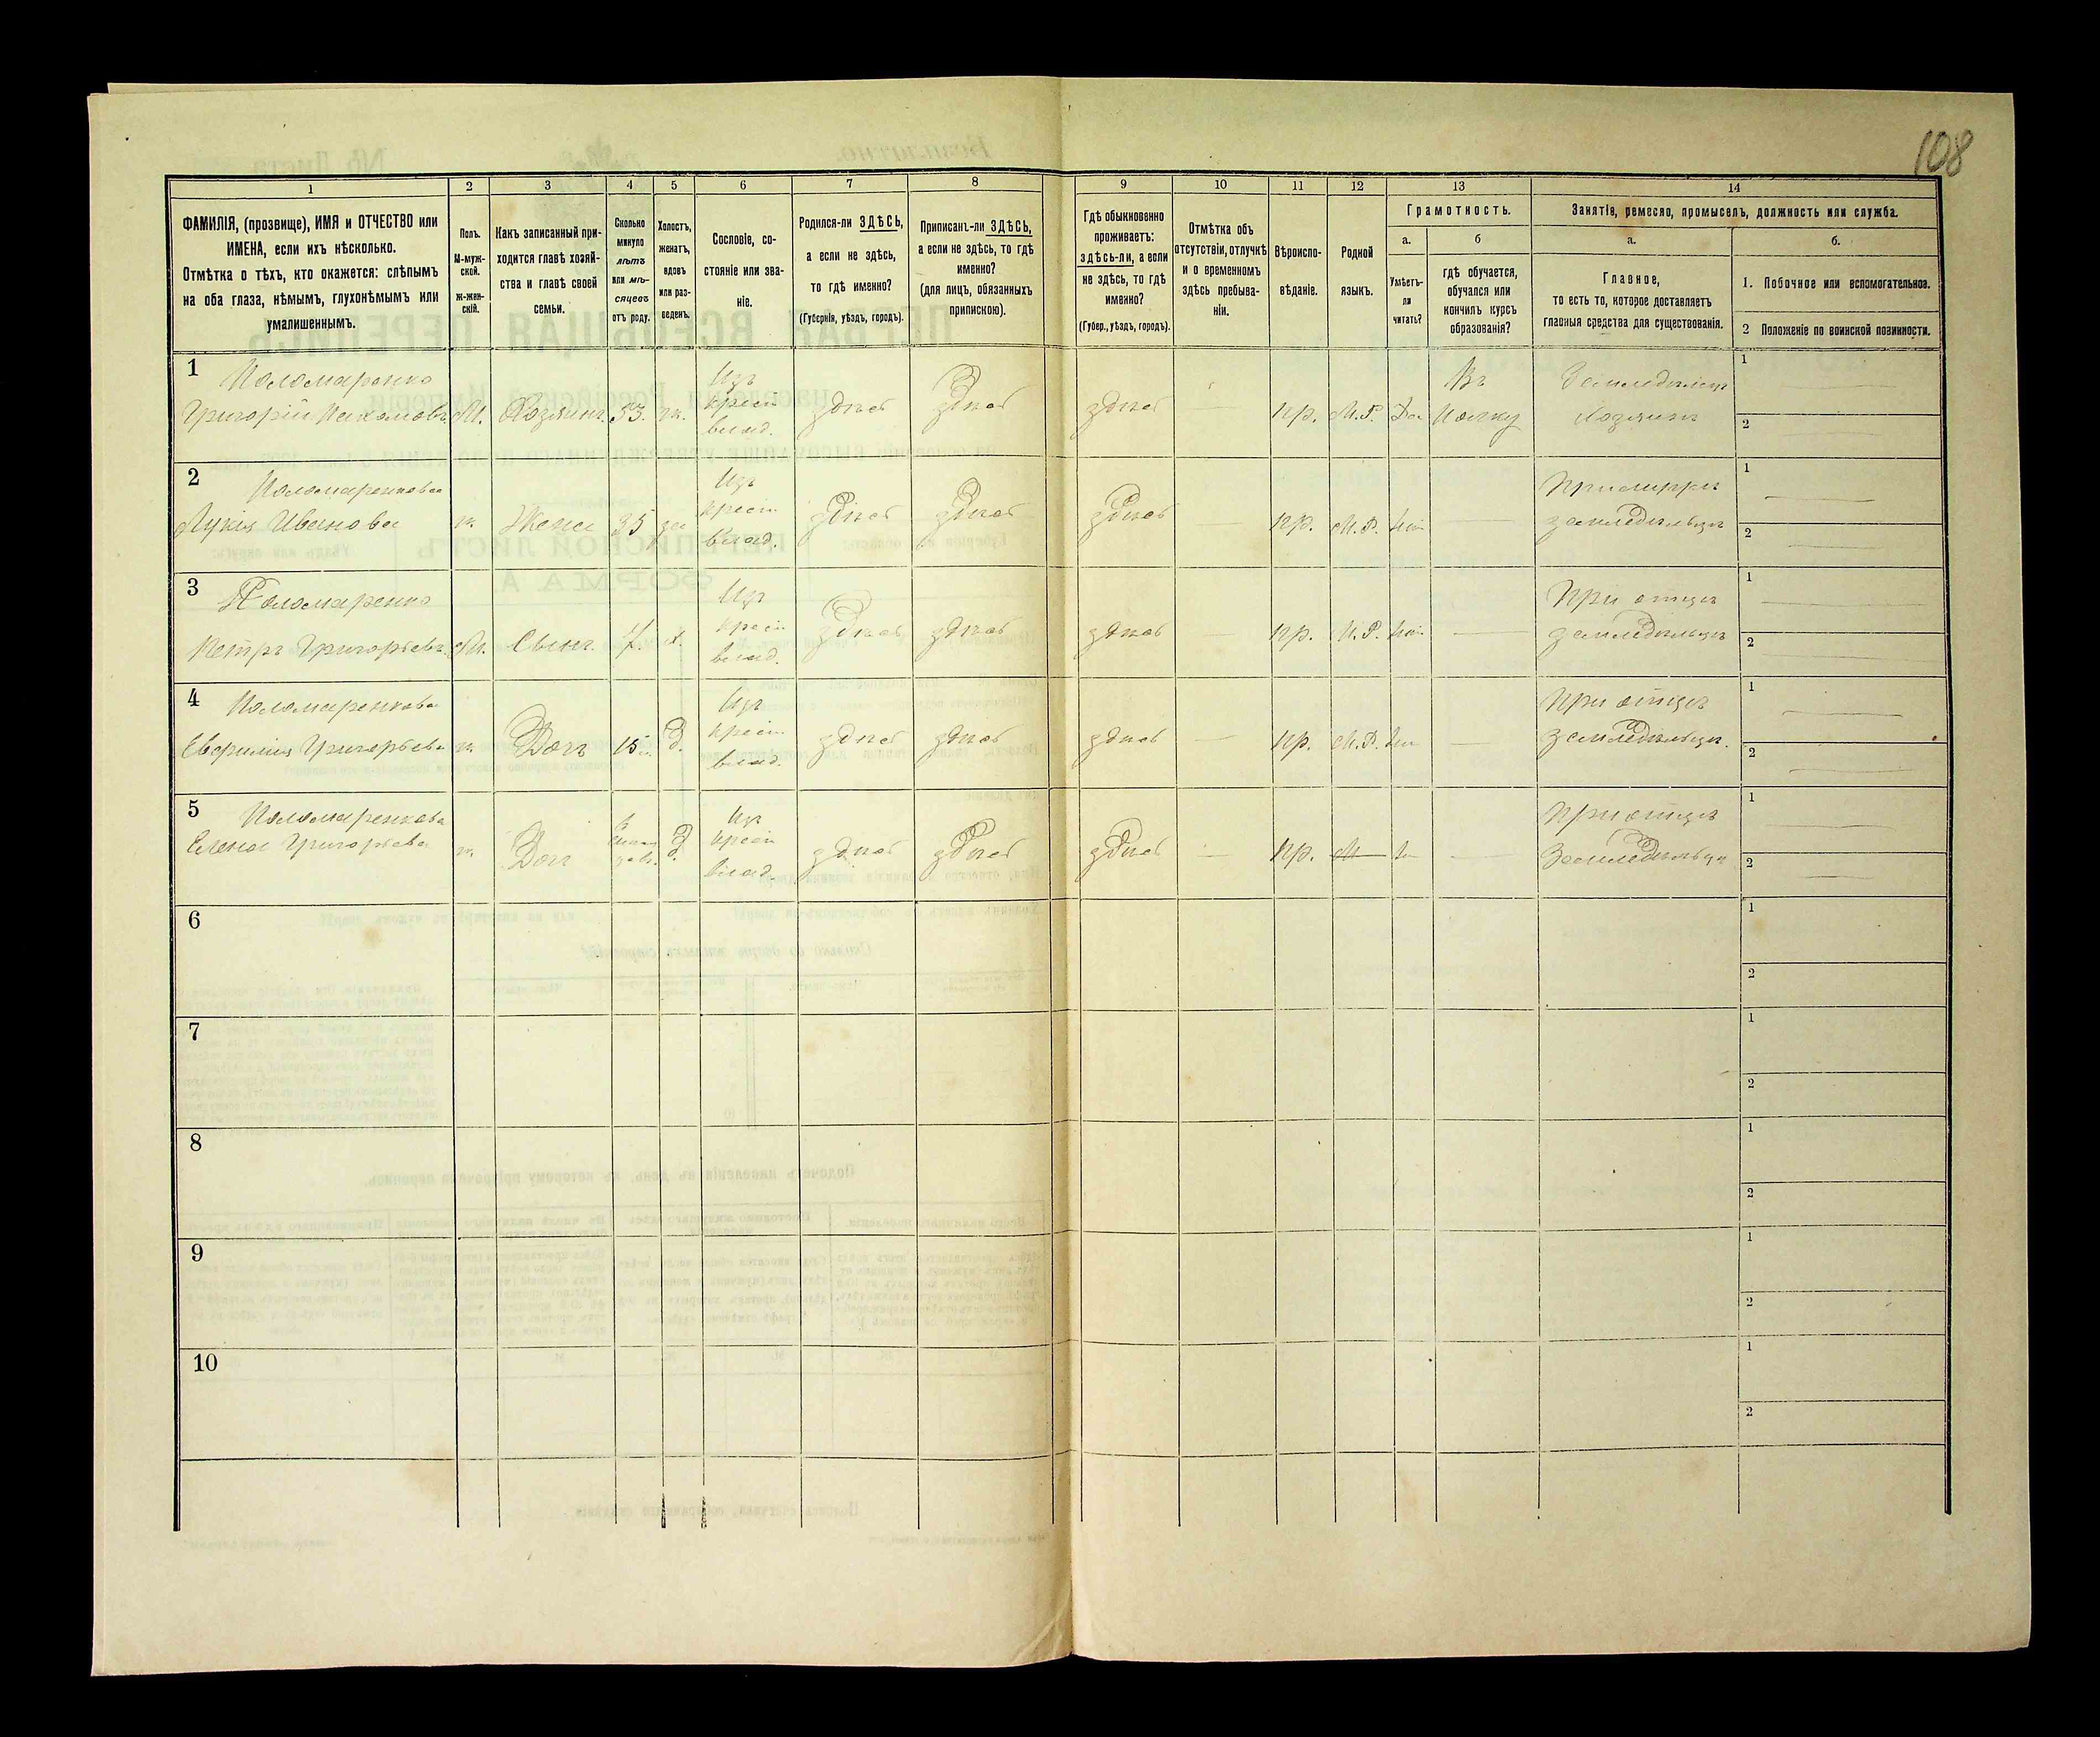 108
1
2
3
4
5
6
7
8
9
10
11
12
13
14
ФАМИЛІЯ, (прозвище), ИМЯ и ОТЧЕСТВО или
ИМЕНА, если ихъ нѣсколько.
Отмѣтка о тѣхъ, кто окажется: слѣпымъ
на оба глаза, нѣмымъ, глухонѣмымъ или
умалишеннымъ.
Полъ.
М-муж-
ской.
ж-жен-
скій.
Какъ записанный при-
ходится главѣ хозяй-
ства и главѣ своей
семьи.
Сколько
минуло
лѣтъ
или мѣ-
сяцевъ
отъ роду.
Холостъ,
женатъ,
вдовъ
или раз-
веденъ.
Сословіе, со-
стояніе или зва-
ніе.
Родился-ли ЗДѢСЬ,
а если не здѣсь,
то гдѣ именно?
(Губернія, уѣздъ, городъ).
Приписанъ-ли ЗДѢСЬ,
а если не здѣсь, то гдѣ
именно?
(для лицъ, обязанныхъ
припискою).
Гдѣ обыкновенно
проживаетъ:
здѣсь-ли, а если
не здѣсь, то гдѣ
именно?
(Губер., уѣздъ, городъ).
Отмѣтка объ
отсутствіи, отлучкѣ
и о временномъ
здѣсь пребыва-
ніи.
Вѣроиспо-
вѣданіе.
Родной
языкъ.
Грамотность.
а.
Умѣетъ-
ли
читать?
б
гдѣ обучается,
обучался или
кончилъ курсъ
образованія?
Занятіе, ремесло, промыселъ, должность или служба.
а.
Главное,
то есть то, которое доставляетъ
главныя средства для существованія.
б.
1. Побочное или вспомогательное.
2 Положеніе по воинской повинности.
1
Поломаренко
Григорій Пахомовъ
М.
Хозяинъ
53.
ж.
Изъ
крест.
влад.
здѣсь
здѣсь
здѣсь
пр.
М.Р.
Да
Въ
Полку
Земледѣлецъ
Хозяинъ
1
2
2
Поломаренкова
Лукія Иванова
ж.
Жена
35
за
Изъ
крест.
влад.
здѣсь
здѣсь
здѣсь
пр.
М.Р.
земледѣльцѣ
1
2
3
Поломаренко
Петръ Григорьевъ
М.
Сынъ.
х.
Изъ
крест.
влад.
здѣсь
здѣсь
здѣсь
пр.
М.Р.
При отцѣ
земледѣльцѣ
1
2
4
Поломаренкова
Григорьева
ж.
Дочь
15
д.
Изъ
крест.
влад.
здѣсь
здѣсь
здѣсь
пр.
М.Р.
При отцѣ
земледѣльцѣ.
1
2
5
Поломаренкова
Елена Григорьева
ж.
Дочь
д.
Изъ
крест.
влад.
здѣсь
здѣсь
здѣсь
пр.
При отцѣ
Земледѣльцѣ
1
2
6
1
2
7
1
2
8
1
2
9
1
2
10
1
2